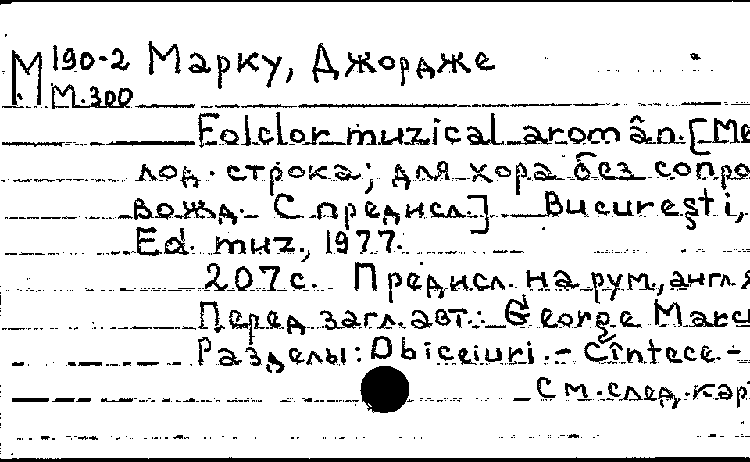 М 190-2 Марку, Джордже
М.300
Folclor muzical aromân.[Ме
лод. строка; для хора без сопро
вожд. С предисл.] Bucureşti,
Ed. muz., 1977.
207с. Предисл. на рум., англ. я
Перед загл. авт.: George Marcu
Разделы: Obiceiuri.- Cîntece.-
См. след. кар